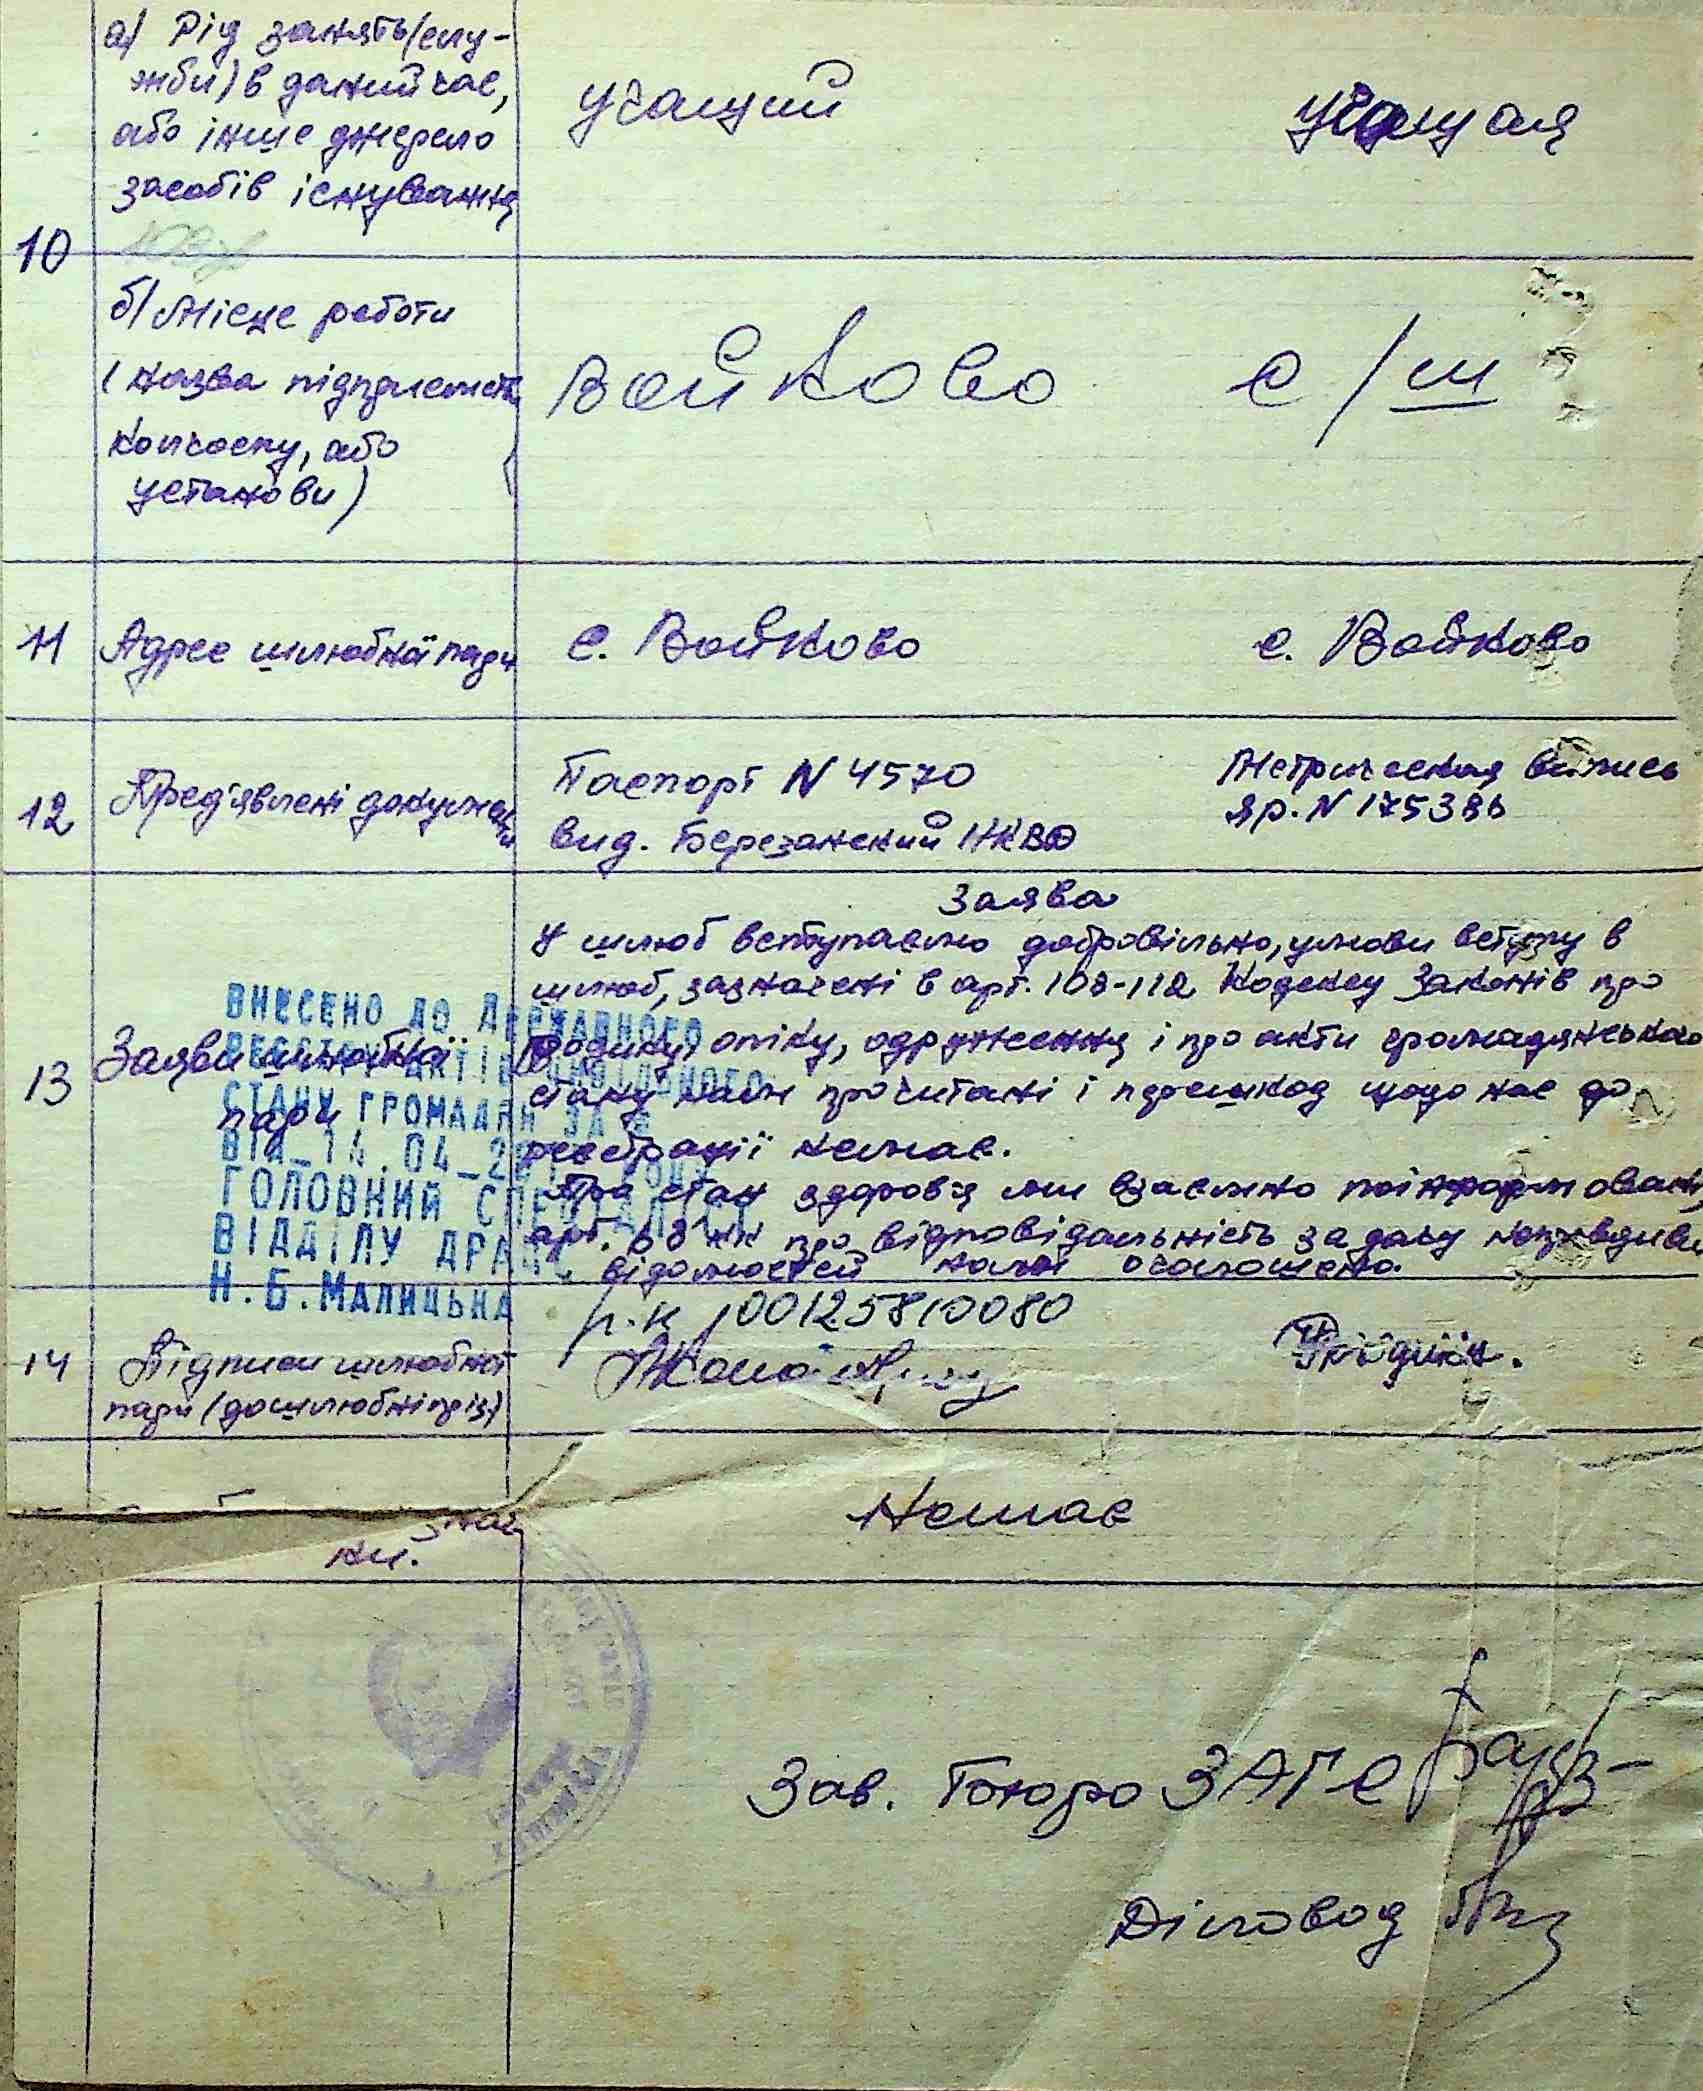 а) Рід занять (слу-
жби) в даний час,
або інше джерело
засобів існування
учащий
учащая
10
б) Місце роботи
(назва підприємств
колгоспу, або
установи)
Войково с/ш
11 Адрес шлюбної пари
с. Войково
с. Войково
12 Пред'явлені документи
Паспорт N 4570
вид. Березанский НКВД
Метрическая выпись
яр. N 175386
13 Заяви шлюбної
пари
Заява
У шлюб вступаємо добровільно, умови вступу в
шлюб, зазначені в арт. 108-112 Кодексу Законів про
родину, опіку, одруження і про акти громадянського
стану нам прочитані і перешкод щодо нас до
реєстрації немає.
Про стан здоров'я ми взаємно поінформовані,
арт. 68 КК про відповідальність за дачу неправдиви
відомостей нам оголошено.
ВНЕСЕНО ДО ДЕРЖАВНОГО
РЕЄСТРУ АКТІВ ЦИВІЛЬНОГО
СТАНУ ГРОМАДЯН ЗА №
ВІД 14.04
ГОЛОВНИЙ СПЕЦІАЛІСТ
ВІДДІЛУ ДРАЦС
Н.Б.МАЛИЦЬКА
14 Підписи шлюбної
пари (дошлюбні пріз)
р.н 00125810080
знач
ки.
Немає
Зав. Бюро ЗАГС
Діловод